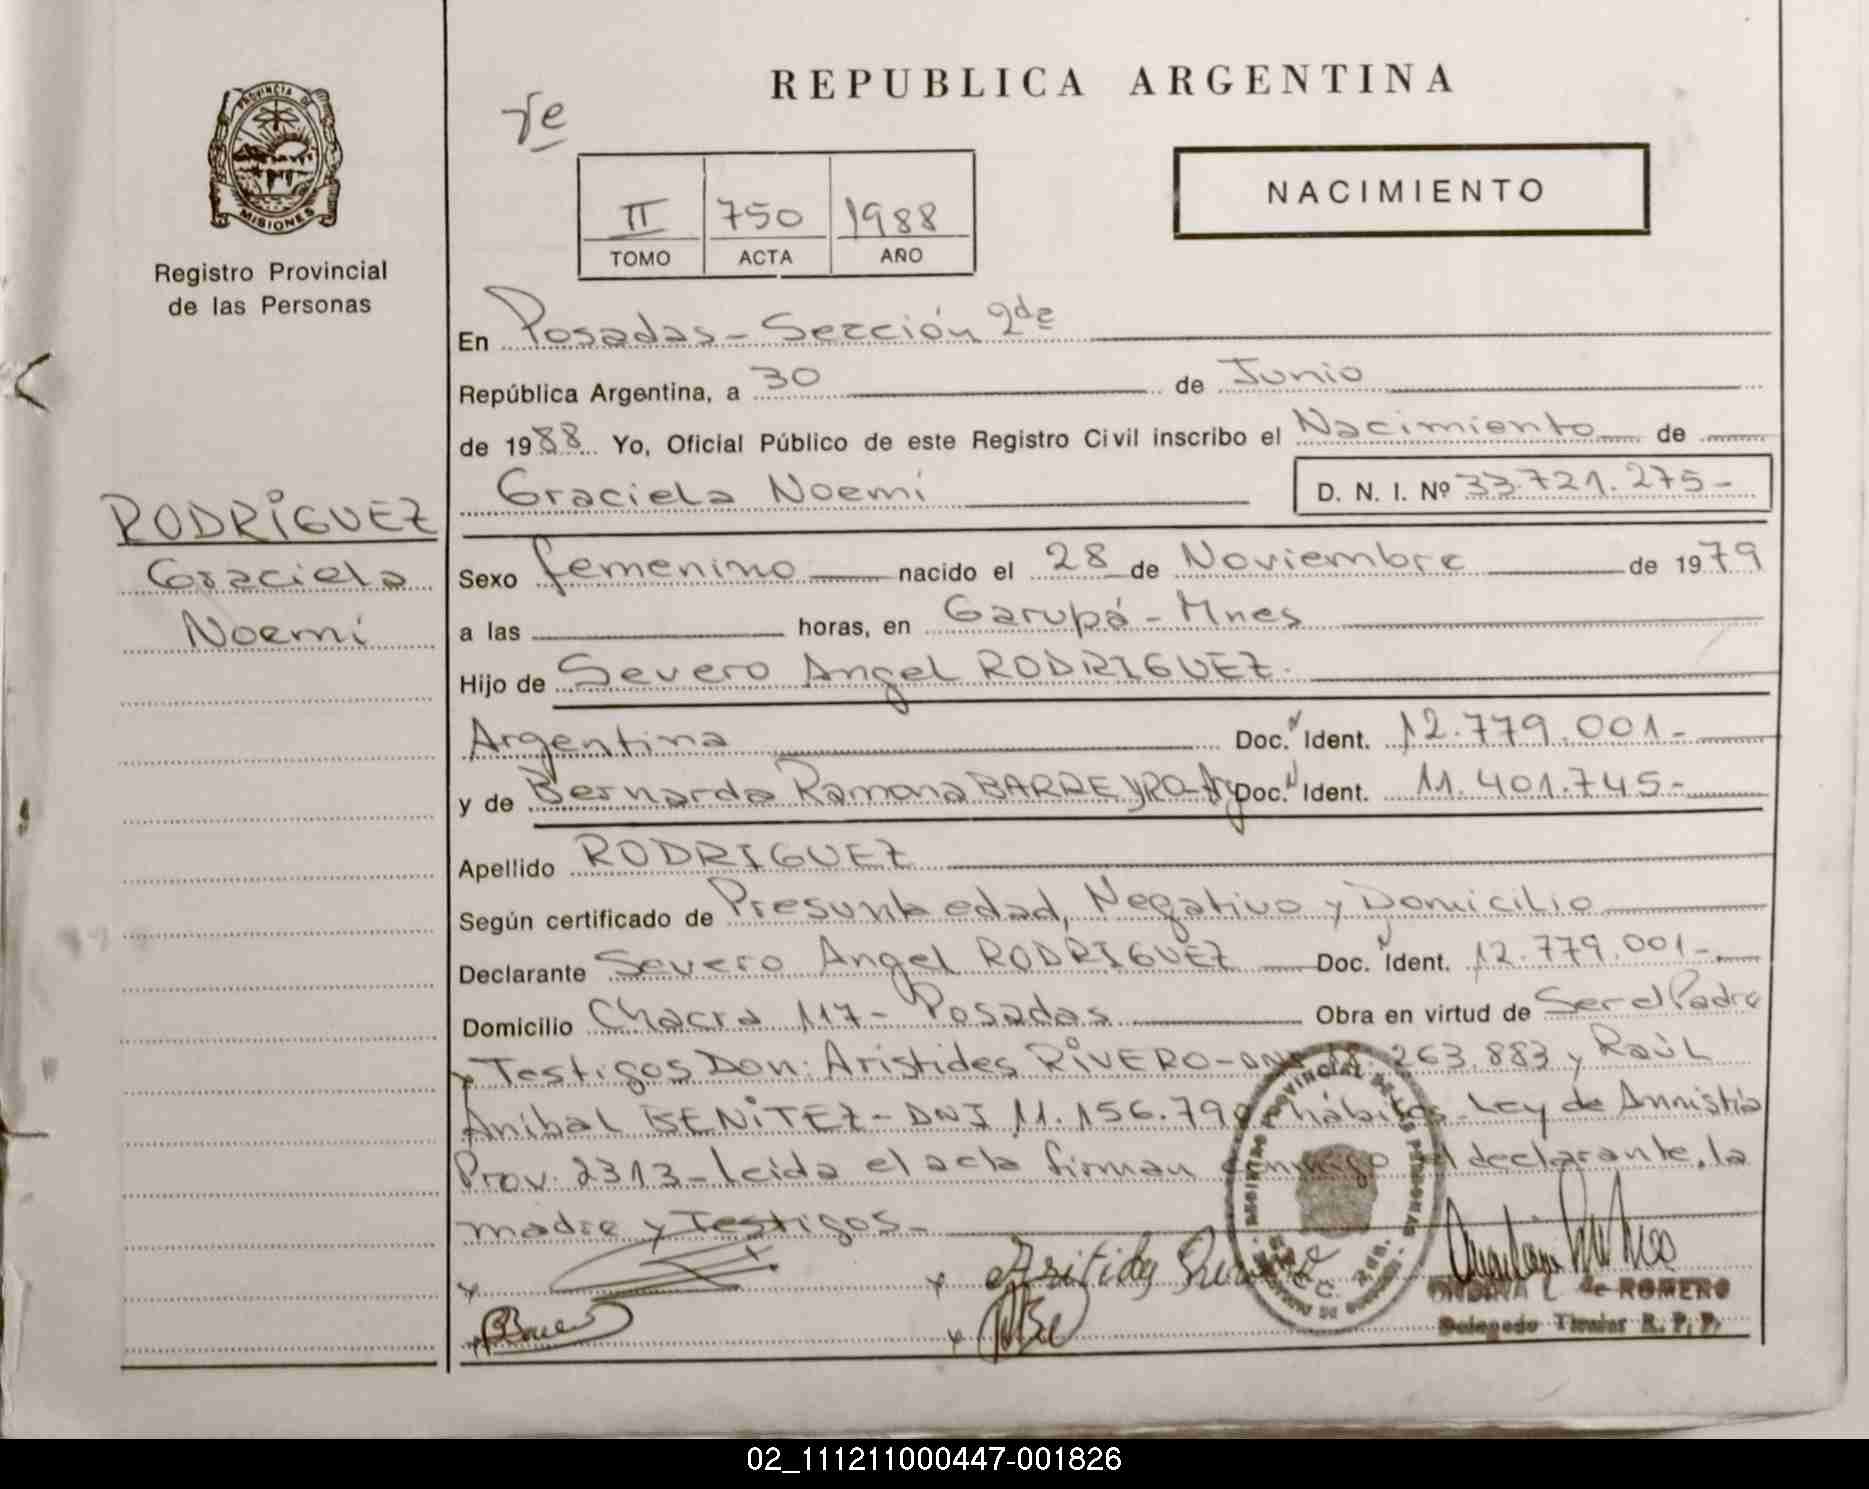 PROVINCIA DE
MISIONES
Registro Provincial
de las Personas
RODRÍGUEZ
Graciela
Noemí
REPUBLICA ARGENTINA
NACIMIENTO
II 750 1988
TOMO ACTA AÑO
En Posadas - Sección 2da
República Argentina, a 30 de Junio
de 1988 Yo, Oficial Público de este Registro Civil inscribo el Nacimiento de
Graciela Noemí D. N. I. Nº 33.721.275-
Sexo femenino nacido el 28 de Noviembre de 1979
a las horas, en Garupá - Mnes
Hijo de Severo Angel RODRIGUEZ
Argentina Doc. Ident. 12.779.001-
y de Bernarda Ramona BARREYRO-Arg Doc. Ident. 11.401.745-
Apellido RODRIGUEZ
Según certificado de Presunta edad, Negativo y Domicilio
Declarante Severo Angel RODRIGUEZ Doc. Ident. 12.779.001-
Domicilio Chacra 117 - Posadas Obra en virtud de Ser el Padre
Testigos Don: Arístides RIVERO - DNI 263.883 y Raúl
Aníbal BENITEZ - DNI 11.156.79 hábiles - Ley de Amnistía
Prov. 2313 - leída el acta firman conmigo el declarante, la
madre y Testigos -
REGISTRO PROVINCIAL DE LAS PERSONAS
de ROMERO
Delegado Titular R. P. P.
02_111211000447-001826